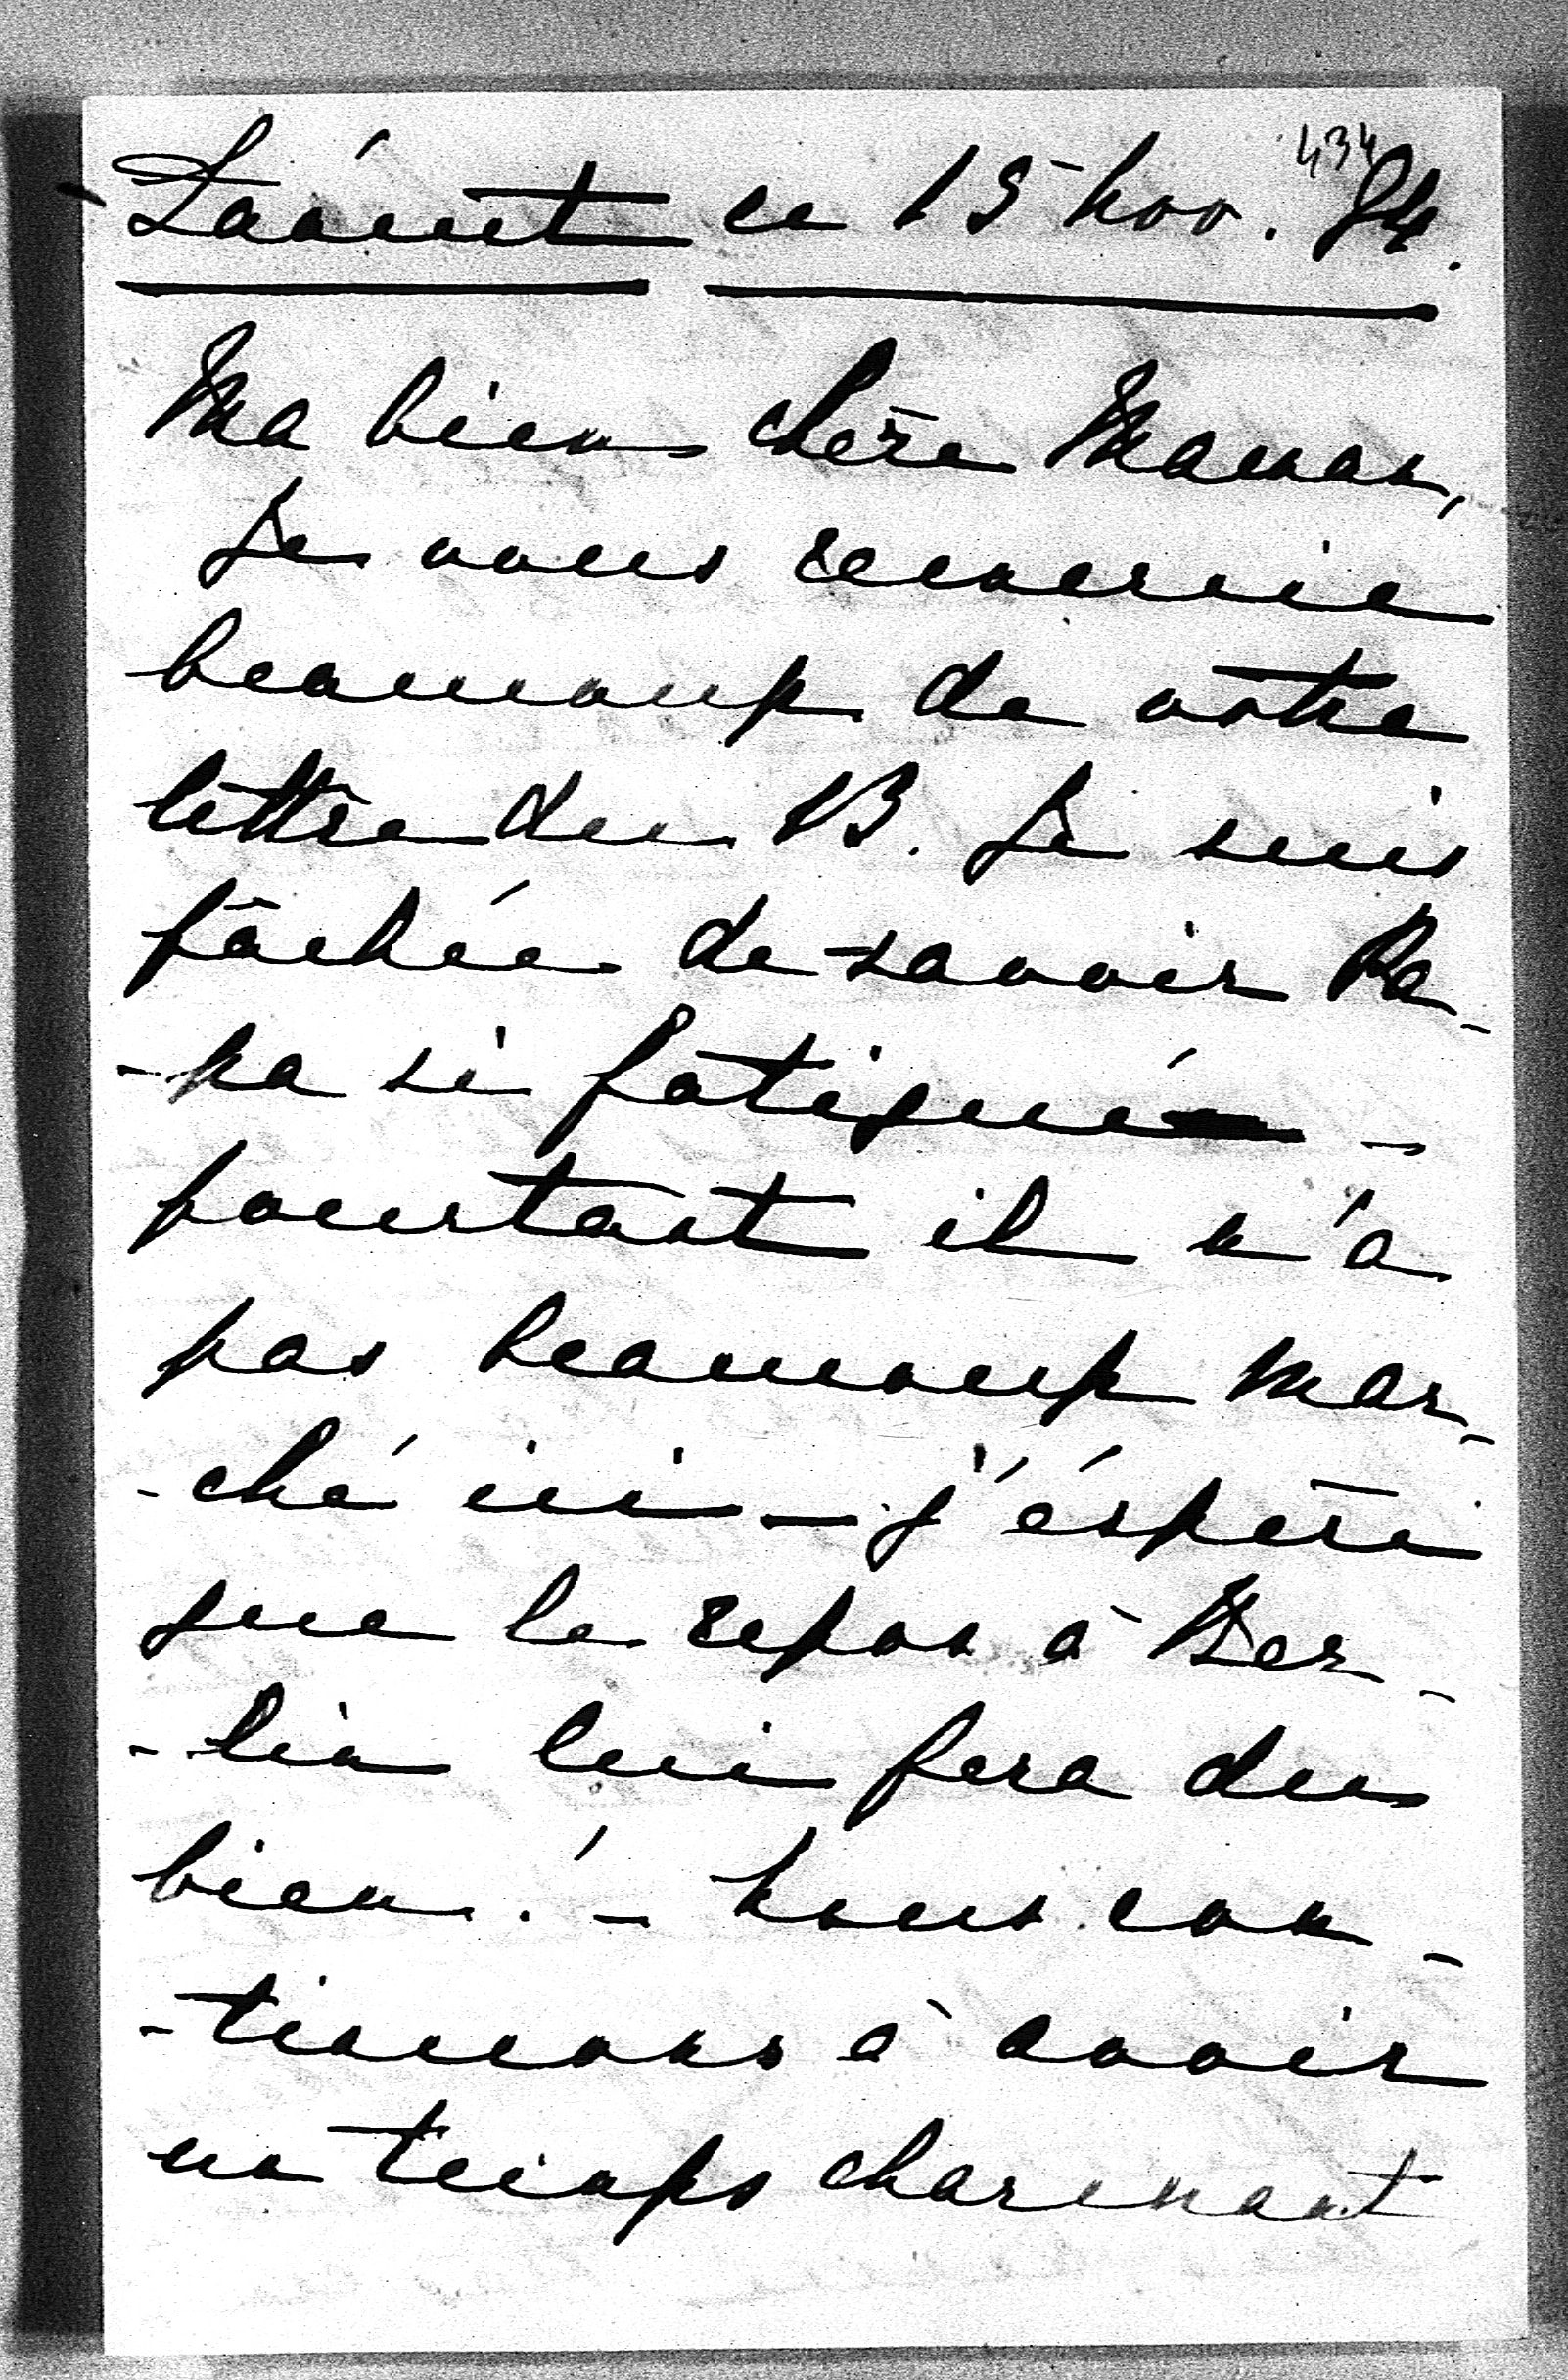 434
Łańcut ce 15 Nov. 84.
Ma bien chère Maman,
Je vous remercie
beaucoup de votre
lettre du 13. Je suis
fâchée de savoir Pa-
-pa si fatigué -
pourtant il n'a
pas beaucoup mar-
-ché ici - j'éspère
que le repos à Ber-
-lin lui fera du
bien! - Nous con-
-tinuons à avoir
un temps charmant